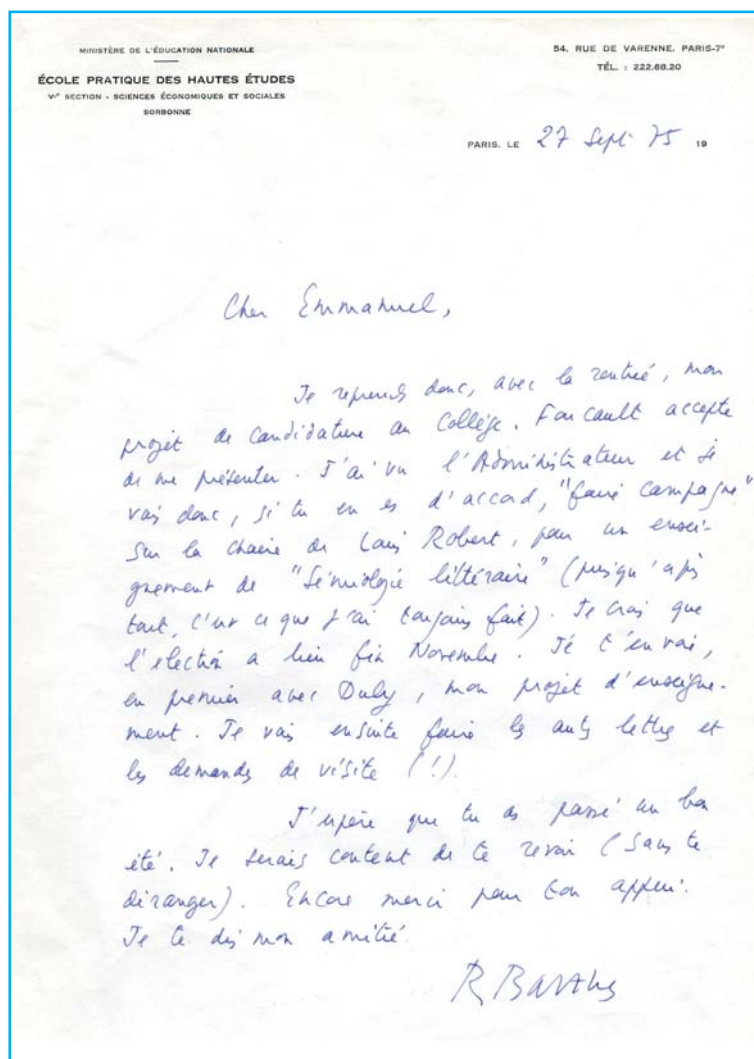 MINISTÈRE DE L'ÉDUCATION NATIONALE
ÉCOLE PRATIQUE DES HAUTES ÉTUDES
VIᵉ SECTION - SCIENCES ÉCONOMIQUES ET SOCIALES
SORBONNE
54, RUE DE VARENNE, PARIS-7ᵉ
TÉL. : 222.68.20
PARIS, LE 27 Sept 75 19
Cher Emmanuel,
Je reprends donc, avec la rentrée, mon
projet de candidature au Collège. Foucault accepte
de me présenter. J'ai vu l'Administrateur et je
vais donc, si tu en es d'accord, "faire campagne"
sur la chaire de Louis Robert, pour un ensei-
gnement de "Sémiologie littéraire" (puisqu'après
tout, c'est ce que j'ai toujours fait). Je crois que
l'élection a lieu fin Novembre. Je t'envoie,
en premier avec Duby, mon projet d'enseigne-
ment. Je vais ensuite faire les autres lettres et
les demandes de visite (!).
J'espère que tu as passé un bon
été. Je serais content de te revoir (sans te
déranger). Encore merci pour ton appui.
Je te dis mon amitié.
R Barthes